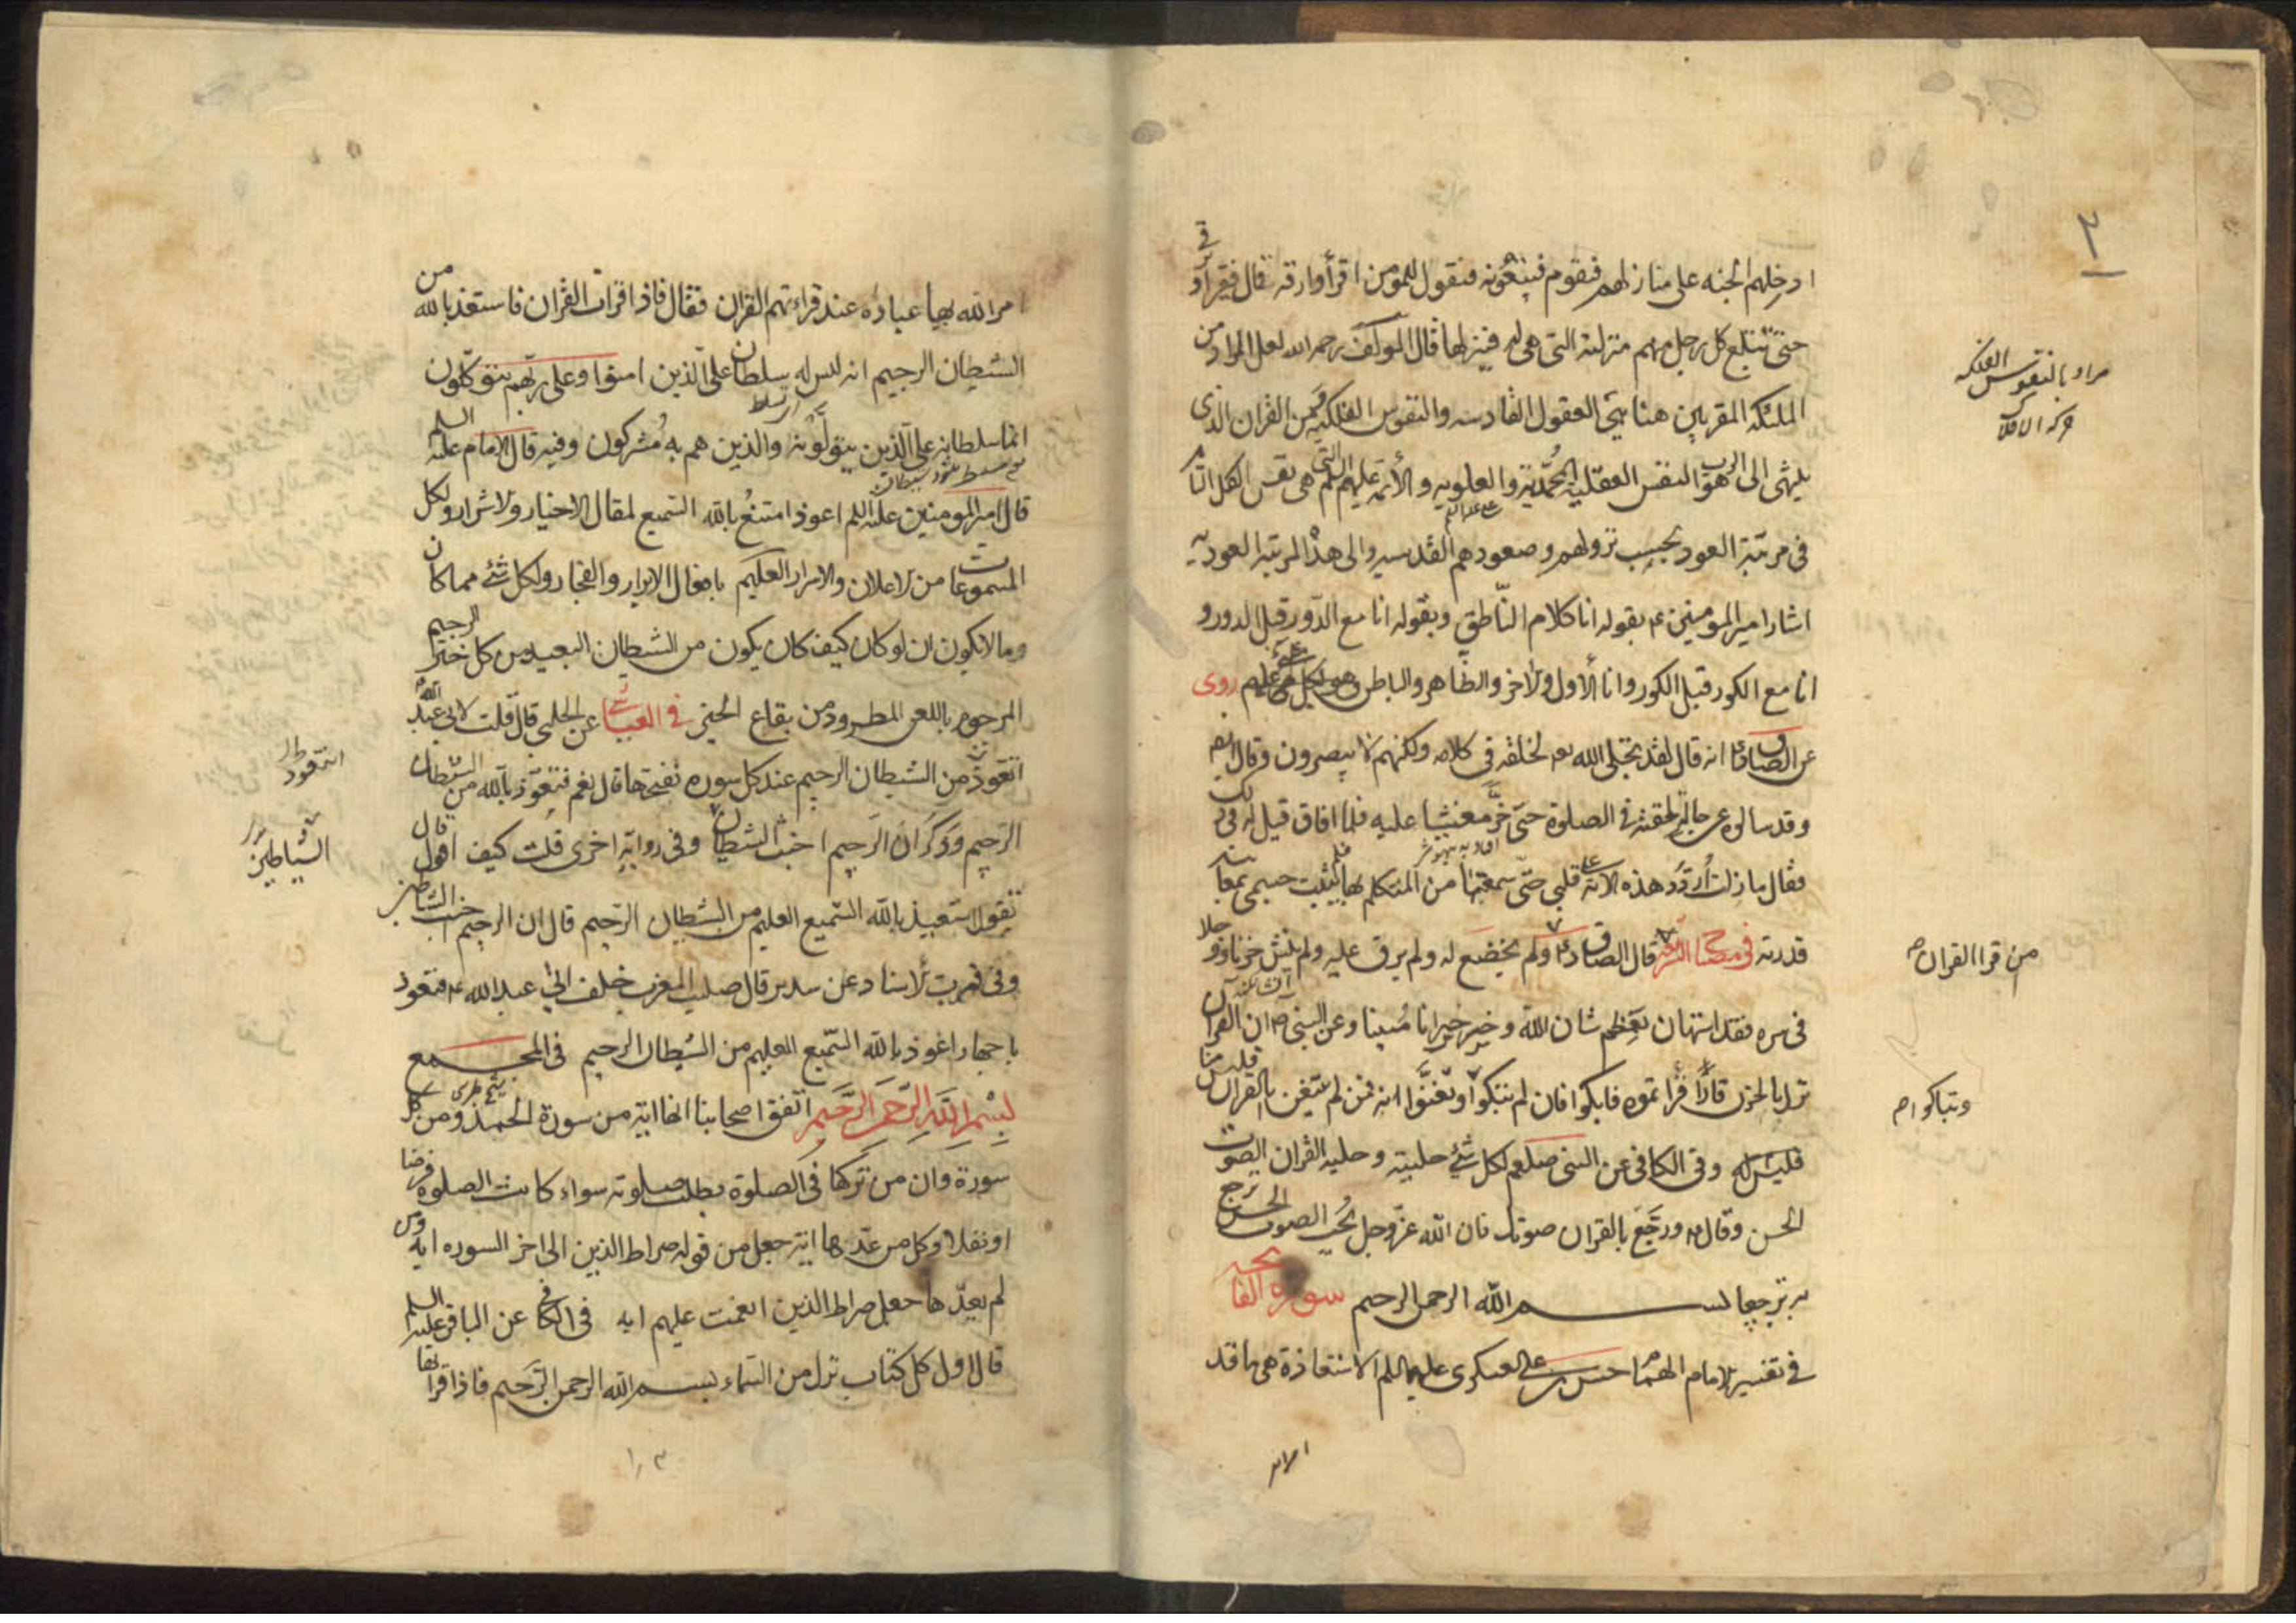 ٣
ادخلهم الجنه على منازلهم فيقوم فيتبعونه فيقول للمؤمن اقرأ وارقه قال فيقرؤا في
حتى تبلغ كل رجل منهم منزلته التي هي له فينزلها قال المولف رحمه الله لعل المراد من
الملئكه المقربين هنا هي العقول القادسه والنفوس الفلكيه فمن القران الذي
ينتهى الى الرب هو النفس العقلية المحمدية والعلويه والأئمة عليهم السلم التي هي نفس الكل
في مرتبة العود بحسب نزولهم وصعودهم القدسيه والى هذ المرتبة العوديه
اشار امير المومنين ع بقوله انا كلام الناطق وبقوله انا مع الدور قبل الدور و
انا مع الكور قبل الكور وانا الأول والاخر والظاهر والباطن روى
عن الصادق انه قال لقد تجلى الله لخلقه في كلامه ولكنهم لا يبصرون وقال
وقد سالوه عن حالة لحقته في الصلوة حتى خر مغشيا عليه فلما افاق قيل له في ذلك
فقال ما زلت أردد هذه الآية على قلبي حتى سمعتها من المتكلم بها فلم يثبت جسمي لمعاينة
قدرته في مصباح الشريعة قال الصادق ع ولم يخضع له ولم يرق عليه ولم ينش حزنا ووجلا
في سره فقد استهان بعظم شان الله وخسر خسرانا مبينا وعن النبي ص ان القران
نزل بالحزن فاذا قراتموه فابكوا فان لم تبكوا وتغنوا به فمن لم يتغن بالقران
فليس منا وفي الكافي عن النبي صلعم لكل شئ حلية وحليه القران الصوت
الحسن وقال ع ورجع بالقران صوتك فان الله عز وجل يحب الصوت الحسن يرجع
به ترجيعا بسم الله الرحمن الرحيم سورة الفاتحه
في تفسير الامام الهمام حسن بن على العسكرى عليهما السلم الاستعاذة هي ما قد
مراد بالنفوس الفلكيه
حركه الافلاك
من قرا القران
وتباكوا
امر الله بها عباده عند قراءتهم القران فقال فاذا قرات القران فاستعذ بالله من
الشيطان الرجيم انه ليس له سلطان على الذين امنوا وعلى ربهم يتوكلون
انما سلطانه على الذين يتولونه والذين هم به مشركون وفيه قال الامام عليه السلم
قال امير المومنين عليه السلم اعوذ امتنع بالله السميع لمقال الاخيار والاشرار ولكل
المسموعات من الاعلان والاسرار العليم بافعال الابرار والفجار ولكل شئ مما كان
وما لا يكون ان لو كان كيف كان يكون من الشيطان البعيد من كل خير الرجيم
المرجوم باللعن المطرود من بقاع الخير في العياشي عن الحلبي قال قلت لابي عبد الله
اتعوذ من الشيطان الرجيم عند كل سوره نفتحها قال نعم فتعوذ بالله من الشيطان
الرجيم وذكر ان الرجيم اخبث الشيطان وفي رواية اخرى قلت كيف اقول قال
تقول استعيذ بالله السميع العليم من الشيطان الرجيم قال ان الرجيم اخبث الشياطين
وفي قرب الاسناد عن سدير قال صليت المغرب خلف ابي عبد الله ع فتعوذ
باجهار اعوذ بالله السميع العليم من الشيطان الرجيم في المجمع
بسم الله الرحمن الرحيم اتفق اصحابنا انها اية من سورة الحمد ومن كل
سورة وان من تركها في الصلوة بطلت صلوته سواء كانت الصلوه فرضا
او نفلا وكل من عدها اية جعل من قوله صراط الذين الى اخر السوره ايه ومن
لم يعدها جعل صراط الذين انعمت عليهم ايه في الكافي عن الباقر عليه السلم
قال اول كل كتاب نزل من السماء بسم الله الرحمن الرحيم فاذا قراتها
الشياطين